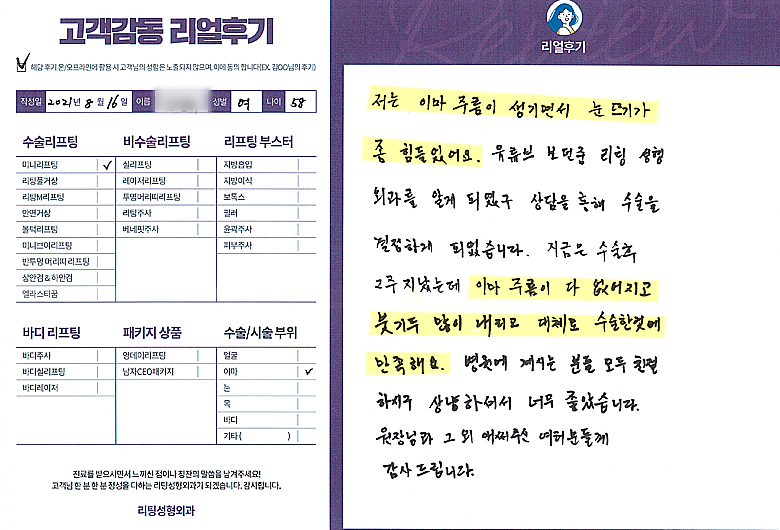 고객감동 리얼후기
해당 후기 온/오프라인에 활용 시 고객님의 성함은 노출되지 않으며, 이에 동의 합니다(EX. 김OO님의 후기)
작성일 2021년 8월 16일 이름 성별 여 나이 58
수술리프팅
미니리프팅 ✓
리팅풀거상
리팅M리프팅
안면거상
볼턱리프팅
미니브이리프팅
반투명 머리띠 리프팅
상안검 & 하안검
엘라스티꿈
비수술리프팅
실리프팅
레이저리프팅
투명머리띠리프팅
리팅주사
베네핏주사
리프팅 부스터
지방흡입
지방이식
보톡스
필러
윤곽주사
피부주사
바디 리프팅
바디주사
바디실리프팅
바디레이저
패키지 상품
영데이리프팅
남자CEO패키지
수술/시술 부위
얼굴
이마 ✓
눈
목
바디
기타( )
진료를 받으시면서 느끼신 점이나 칭찬의 말씀을 남겨주세요!
고객님 한 분 한 분 정성을 다하는 리팅성형외과가 되겠습니다. 감사합니다.
리팅성형외과
리얼후기
저는 이마 주름이 생기면서 눈 뜨기가
좀 힘들었어요. 유튜브 보던중 리팅 성형
외과를 알게 되었구 상담을 통해 수술을
결정하게 되었습니다. 지금은 수술후
2주 지났는데 이마 주름이 다 없어지고
붓기두 많이 내리고 대체로 수술한것에
만족해요. 병원에 계시는 분들 모두 친절
하시구 상냥하셔서 너무 좋았습니다.
원장님과 그 외 애써주신 여러분들께
감사드립니다.